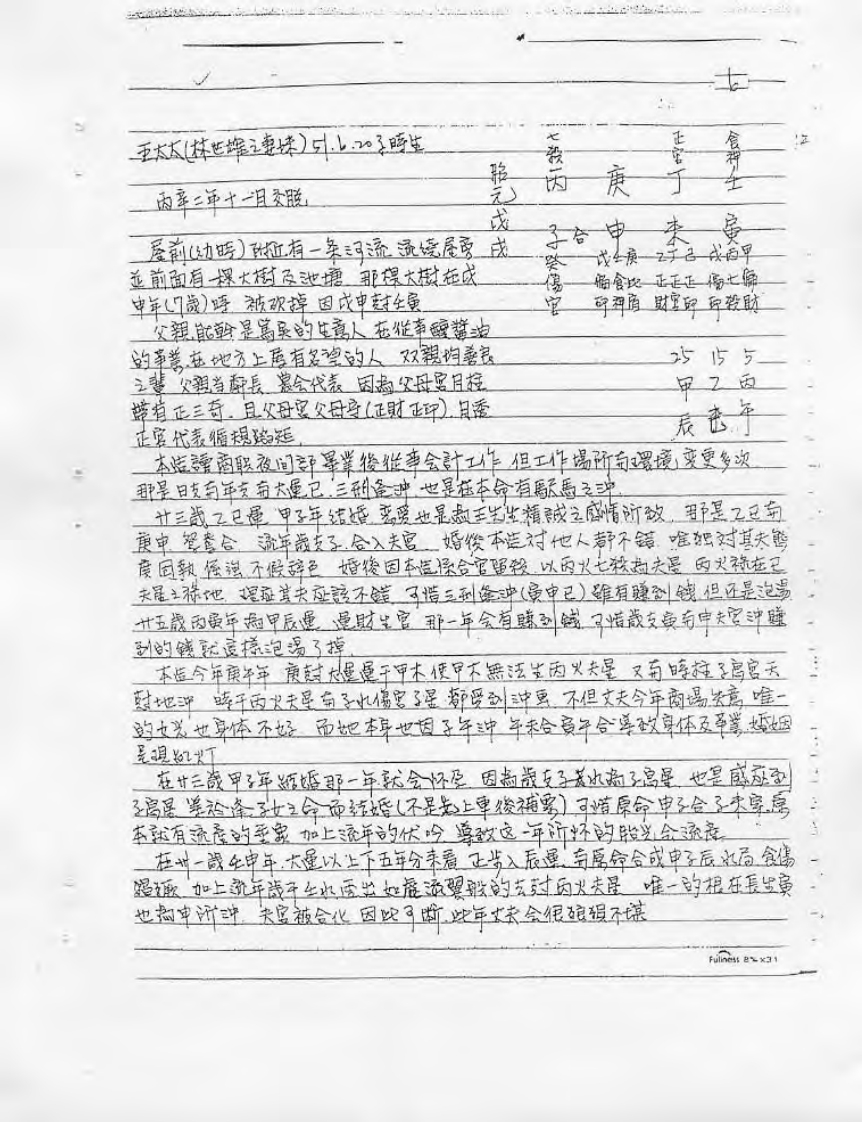 七
王太太(林世雄之妻妹)51.6.20子時生
七殺 正官 食神
胎元戊戌
丙 庚 丁 壬
丙辛二年十一月交脫
子合 申 未 寅
癸 戊壬庚 乙丁己 戊丙甲
傷官 偏印 食神 比肩 正財 正官 正印 偏印 七殺 偏財
25 15 5
甲 乙 丙
辰 巳 午
屋前(幼時)附近有一条河流 流繞屋旁
並前面有一棵大樹及池塘 那棵大樹在戊
申年(7歲)時 被砍掉 因戊申尅壬寅
父親能幹是篤實的生意人 在從事釀醬油
的事業 在地方上屬有名望的人 双親均善良
之輩 父親当鄰長 農会代表 因為父母宮月柱
帶有正三奇 且父母宮父母守(正財正印) 月透
正官代表循規蹈矩
本造讀商職夜間部畢業後從事会計工作 但工作場所和環境 变更多次
那是日支和年支和大運巳 三刑逢沖 也是在本命有驛馬之沖
廿三歲乙巳運 甲子年結婚 戀愛也是為王先生精誠之感情所致 那是乙巳和
庚申 鴛鴦合 流年歲支子 合入夫宮 婚後本造对他人都不錯 唯独对其夫態
度固執 倔強 不假辞色 婚後因本造係合官留殺 以丙火七殺為夫星 丙火祿在巳
夫星之祿地 理應其夫应該不錯 可惜三刑逢沖(寅申巳) 雖有賺到錢 但还是泡湯
廿五歲丙寅年 為甲辰運 運財生官 那一年会有賺到錢 可惜歲支寅和申夫宮沖 賺
到的錢就這樣泡湯了掉
本造今年庚午年 庚尅大運運干甲木 使甲木無法生丙火夫星 又和時柱子息宮天
尅地沖 時干丙火夫星和子水傷官子星 都受到沖尅 不但丈夫今年商場失意 唯一
的女兒也身体不好 而她本身也因子午沖 午未合寅午合 導致身体及事業 婚姻
呈現紅灯
在廿三歲甲子年結婚那一年就会怀孕 因為歲支子癸水為子息星 也是感應到
子息星 等於逢子女之命而結婚(不是先上車後補票) 可惜原命申子合 子未害 原
本就有流產的意象 加上流年的伏吟 導致这一年所怀的胎兒会流產
在卅一歲壬申年 大運以上下五年分來看 正步入辰運 和原命合成申子辰水局 食傷
猖獗 加上流年歲干壬水透出 的去尅丙火夫星 唯一的根在長生寅
也為申所沖 夫宮被合化 因此可断 此年丈夫会很狼狽不堪
Fullness